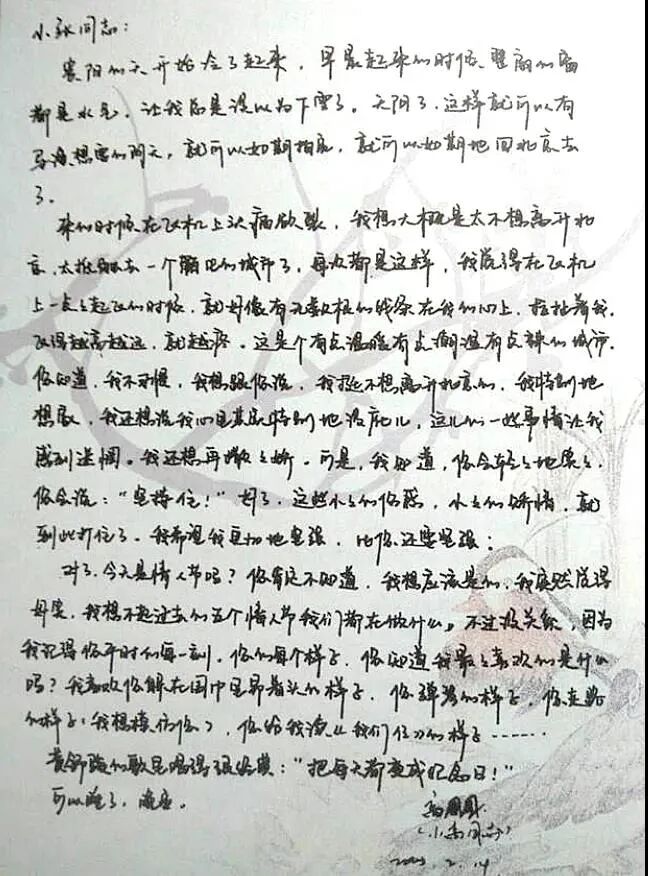 小张同志：
襄阳的天开始冷了起来，早晨起来的时候，整扇的窗
都是水气，让我总是误以为下雪了。天阴了，这样就可以有
导演想要的阴天，就可以如期拍戏，就可以如期地回北京去
了。
来的时候在飞机上头痛欲裂，我想大概是太不想离开北
京，太抵触去一个陌生的城市了，每次都是这样，我觉得在飞机
上一点点起飞的时候，就好像有无数根的线系在我的心上，拉扯着我，
飞得越高越远，就越疼。这是个有点温暖有点潮湿有点辣的城市，
你知道，我不习惯，我想跟你说，我挺不想离开北京的，我特别地
想家，我还想说我心里其实特别地没底儿，这儿的一些事情让我
感到迷惘。我还想再撒撒娇。可是，我知道，你会轻轻地笑笑，
你会说：“坚持住！”好了，这些小小的伤感，小小的矫情，就
到此打住了。我希望我更加地坚强，比你还要坚强！
对了，今天是情人节吗？你肯定不知道，我想应该是的，我突然觉得
好笑，我想不起过去的五个情人节我们都在做什么。不过没关系，因为
我记得你平时的每一刻，你的每个样子，你知道我最最喜欢的是什么
吗？我喜欢你躲在围巾里昂着头的样子，你弹琴的样子，你走路
的样子（我想模仿你），你给我读《我们仨》的样子……
黄舒骏的歌里唱得很经典：“把每天都变成纪念日！”
可以睡了，晚安。
高圆圆
（小高同志）
2.14